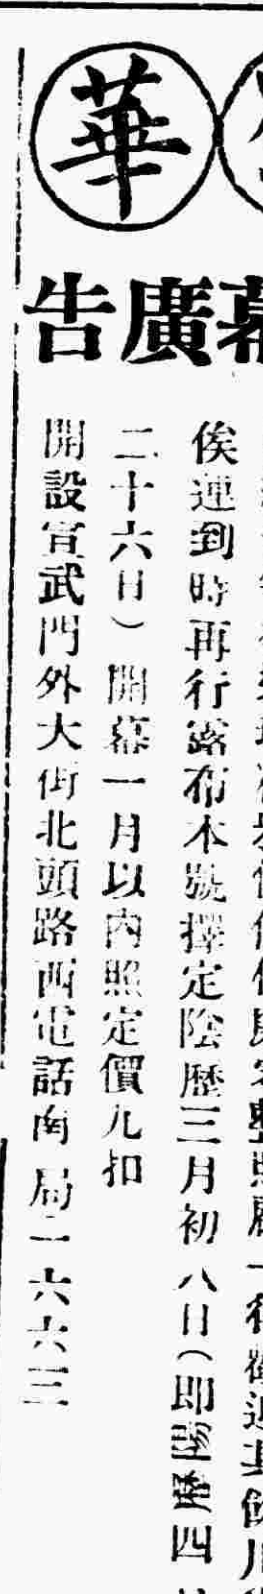 華
幕廣告
俟運到時再行露布本號擇定陰歷三月初八日（即四
二十六日）開幕一月以內照定價九扣
開設宣武門外大街北頭路西電話南局一六六三